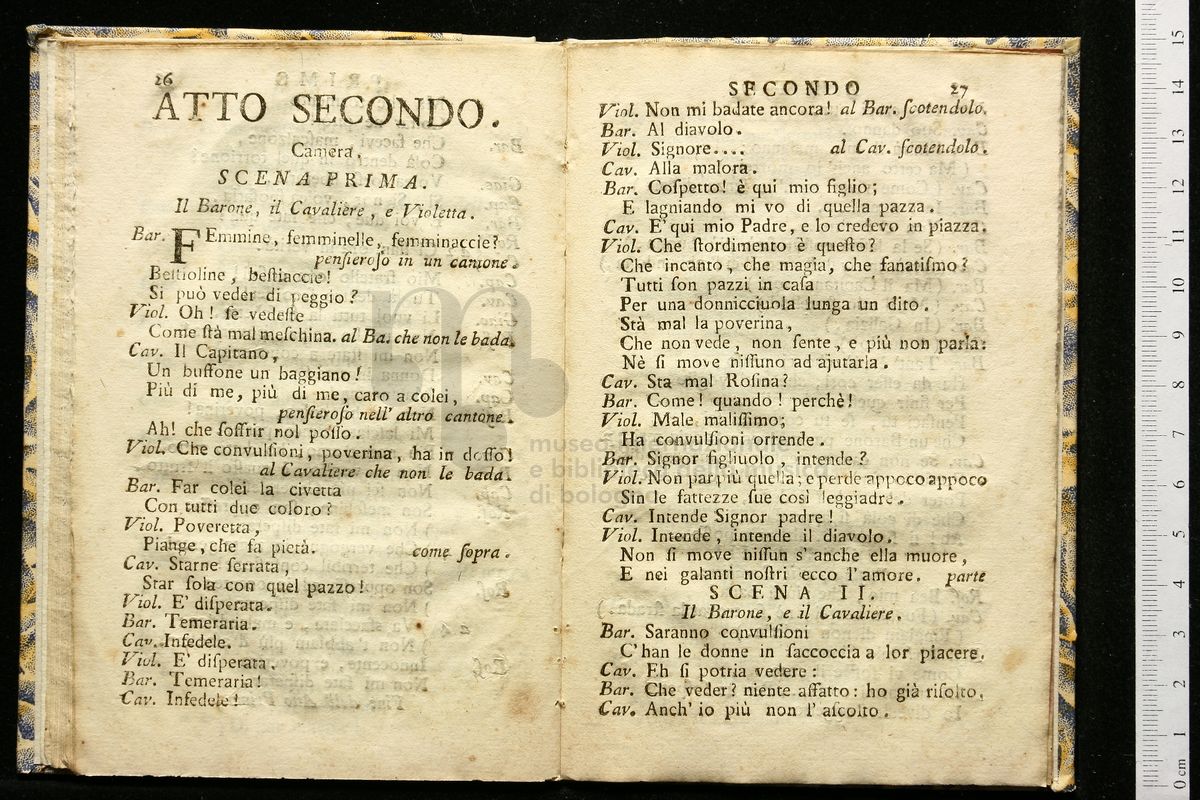 26
ATTO SECONDO.
Camera,
SCENA PRIMA.
Il Barone, il Cavaliere, e Violetta.
Bar. FEmmine, femminelle, femminaccie?
pensieroso in un cantone.
Bestioline, bestiaccie!
Si può veder di peggio?
Viol. Oh! se vedeste
Come stà mal meschina. al Ba. che non le bada.
Cav. Il Capitano,
Un buffone un baggiano!
Più di me, più di me, caro a colei,
pensieroso nell' altro cantone.
Ah! che soffrir nol posso.
Viol. Che convulsioni, poverina, ha in dosso!
al Cavaliere che non le bada.
Bar. Far colei la civetta
Con tutti due coloro?
Viol. Poveretta,
Piange, che fa pietà. come sopra.
Cav. Starne serrata,
Star sola con quel pazzo!
Viol. E' disperata.
Bar. Temeraria.
Cav. Infedele.
Viol. E' disperata.
Bar. Temeraria!
Cav. Infedele!
SECONDO 27
Viol. Non mi badate ancora! al Bar. scotendolo.
Bar. Al diavolo.
Viol. Signore.... al Cav. scotendolo.
Cav. Alla malora.
Bar. Cospetto! è qui mio figlio;
E lagniando mi vo di quella pazza.
Cav. E' qui mio Padre, e lo credevo in piazza.
Viol. Che stordimento è questo?
Che incanto, che magia, che fanatismo?
Tutti son pazzi in casa
Per una donnicciuola lunga un dito.
Stà mal la poverina,
Che non vede, non sente, e più non parla:
Nè si move nissuno ad ajutarla.
Cav. Sta mal Rosina?
Bar. Come! quando! perchè!
Viol. Male malissimo;
Ha convulsioni orrende.
Bar. Signor figliuolo, intende?
Viol. Non par più quella; e perde appoco appoco
Sin le fattezze sue così leggiadre.
Cav. Intende Signor padre!
Viol. Intende, intende il diavolo.
Non si move nissun s' anche ella muore,
E nei galanti nostri ecco l' amore. parte
SCENA II.
Il Barone, e il Cavaliere.
Bar. Saranno convulsioni
C' han le donne in saccoccia a lor piacere.
Cav. Eh si potria vedere:
Bar. Che veder? niente affatto: ho già risolto.
Cav. Anch' io più non l' ascolto.
museo
e biblioteca
di bologna
0 cm 1 2 3 4 5 6 7 8 9 10 11 12 13 14 15